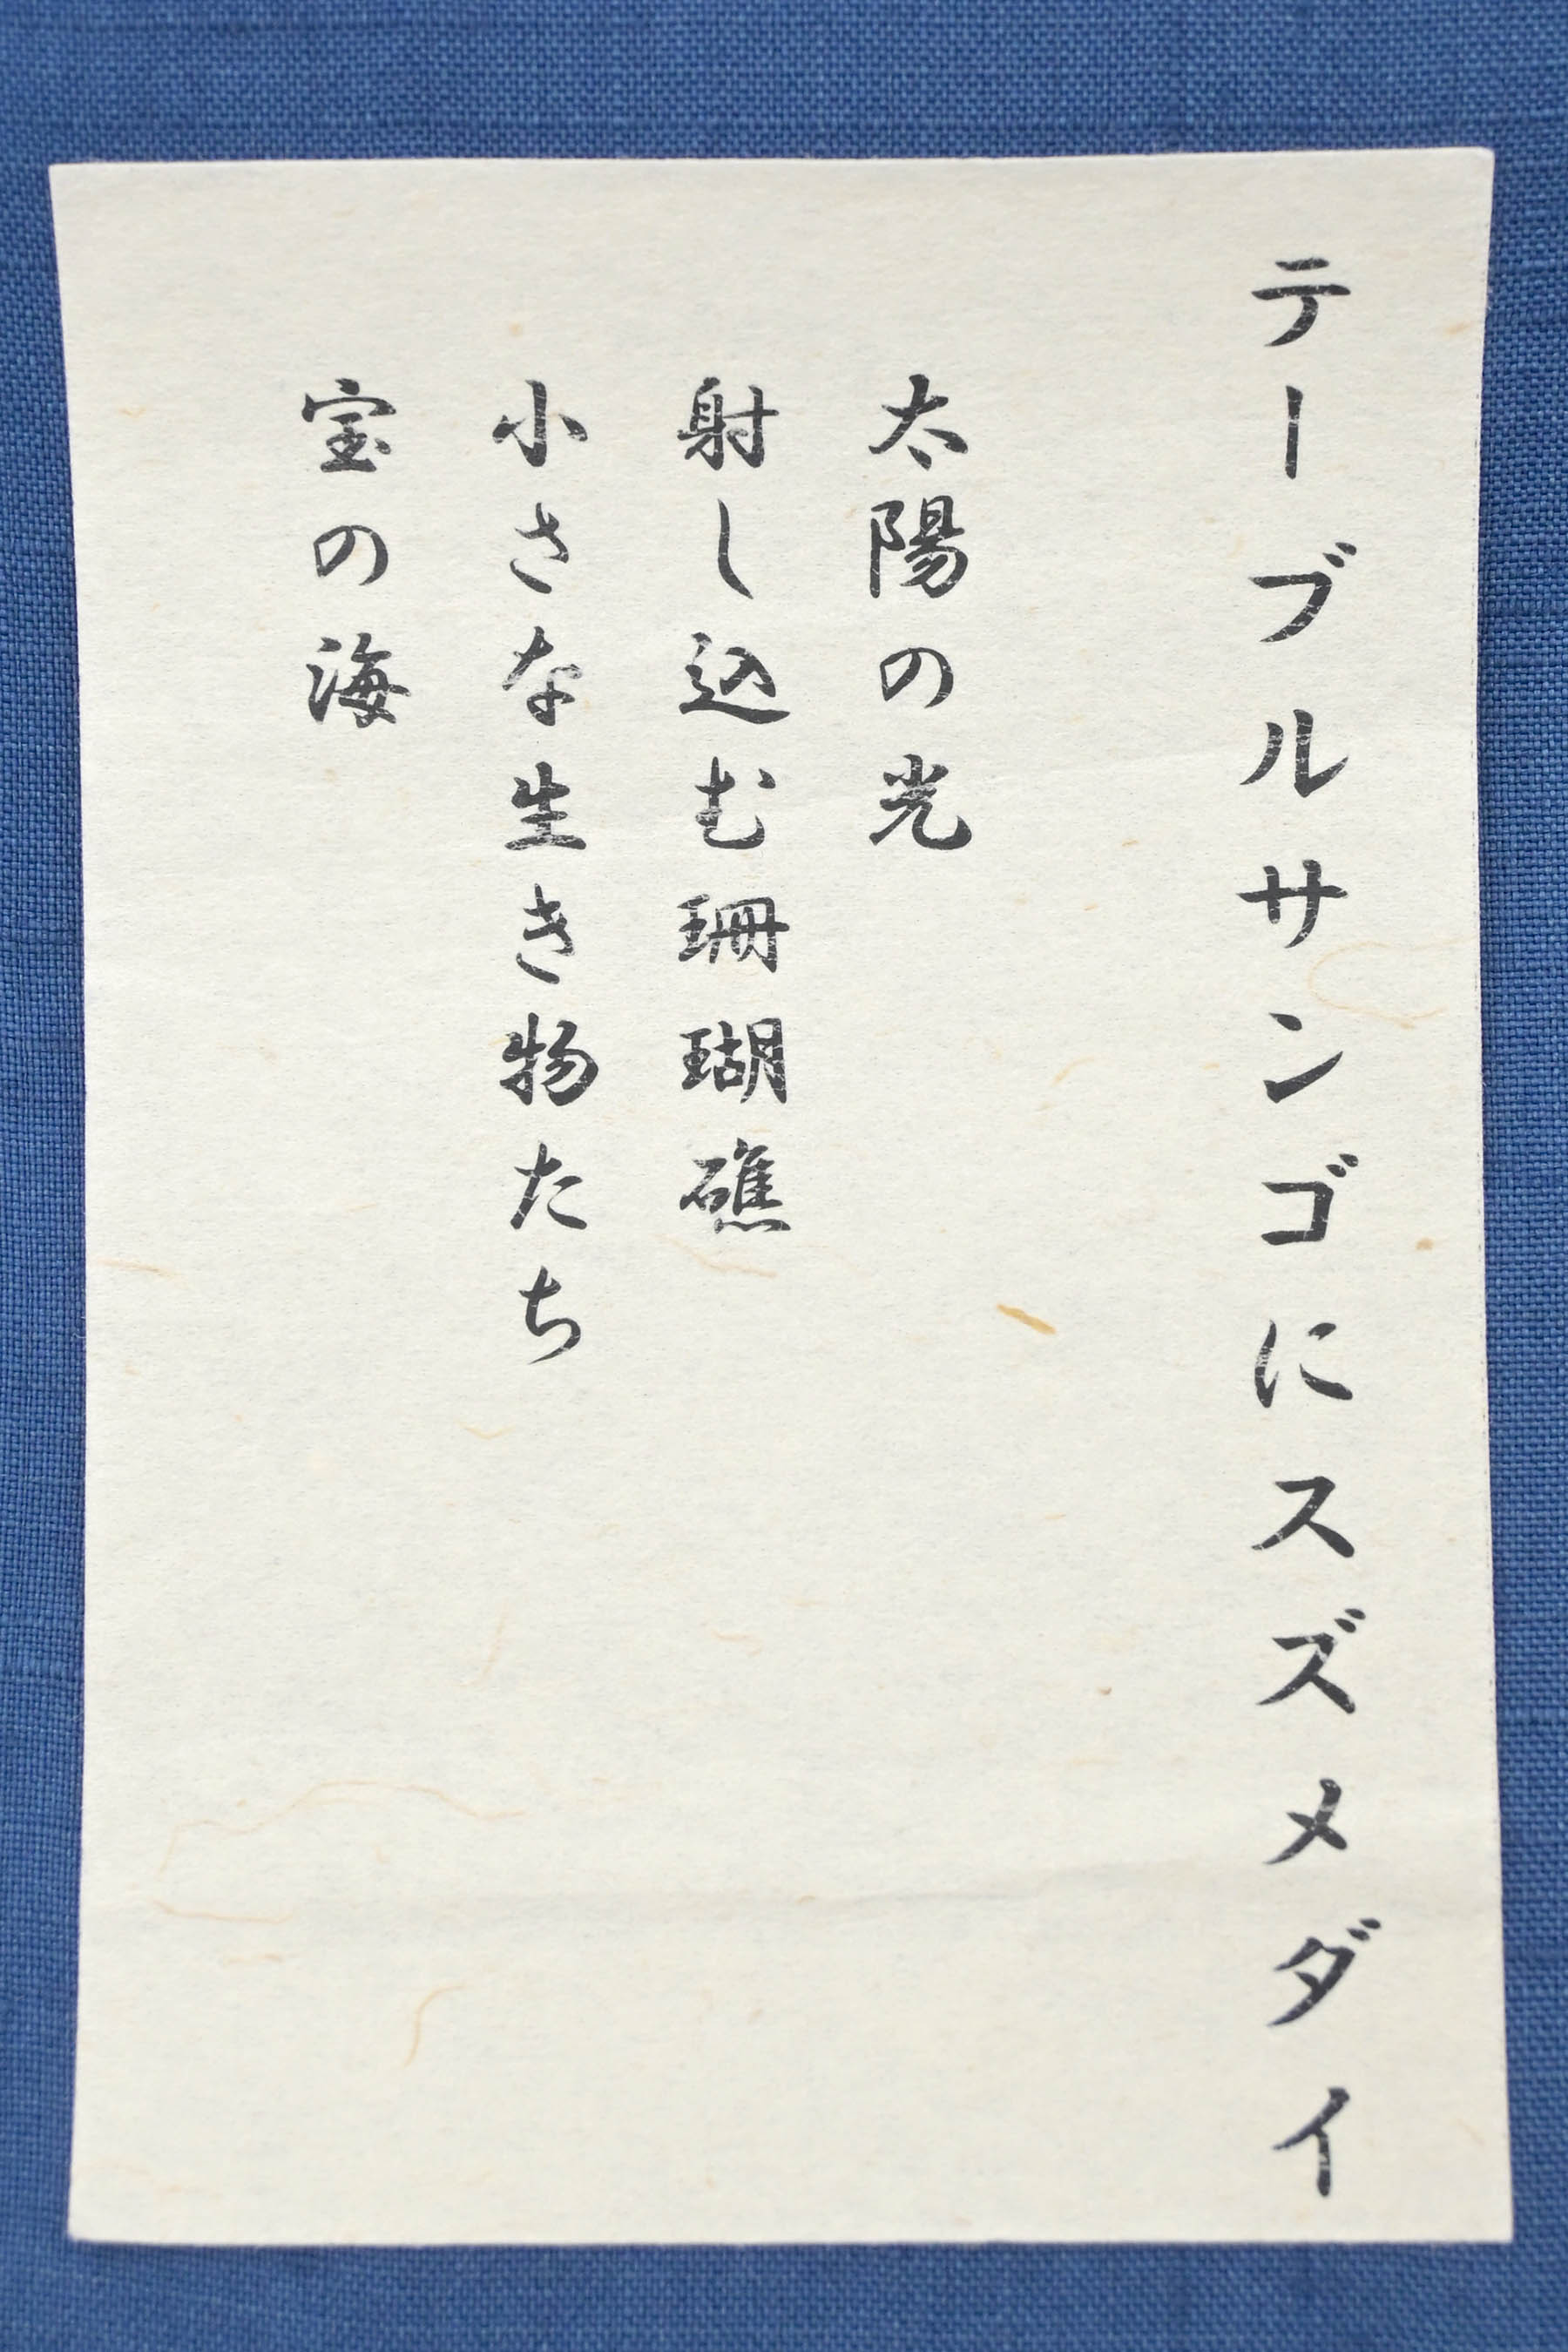 テーブルサンゴにスズメダイ
太陽の光
射し込む珊瑚礁
小さな生き物たち
宝の海